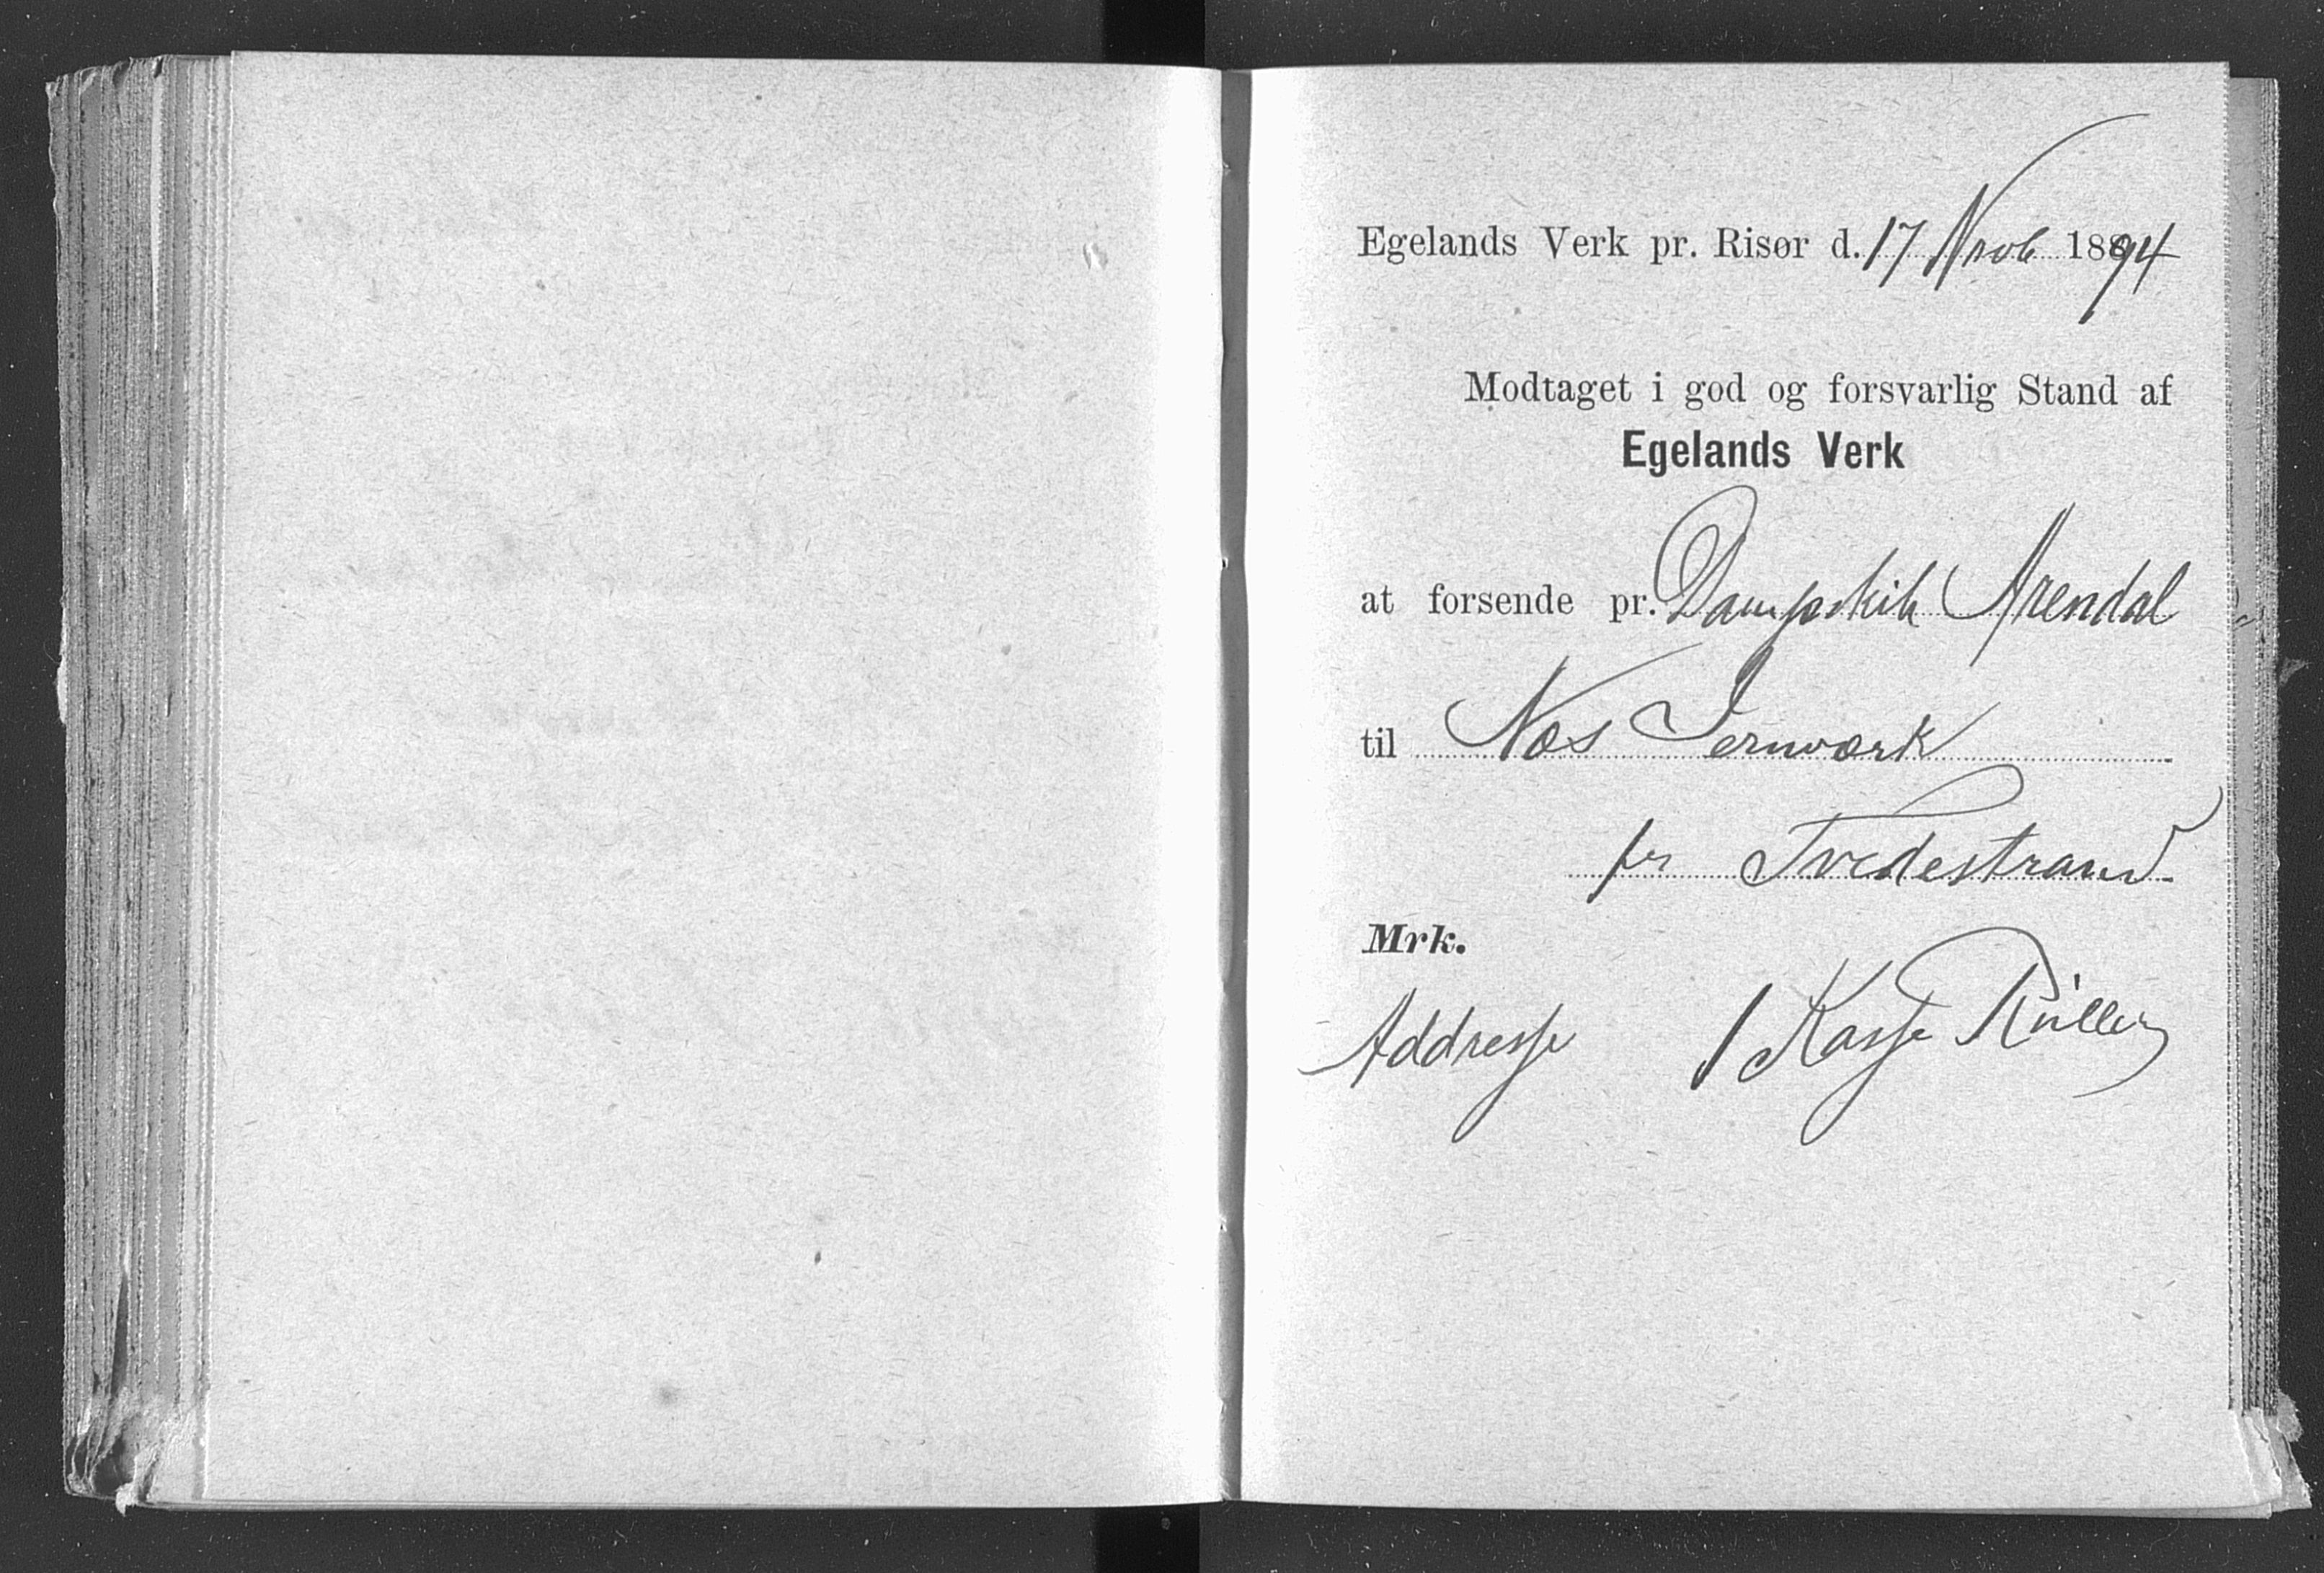 Egelands Verk pr. Risør d. 17 Novb 1894
Modtaget i god og forsvarlig Stand af
Egelands Verk
at forsende pr. Dampskib Arendal
til Næs Jernværk
pr Tvedestrand
Mrk.
Addresse 1 Kasse Ruller